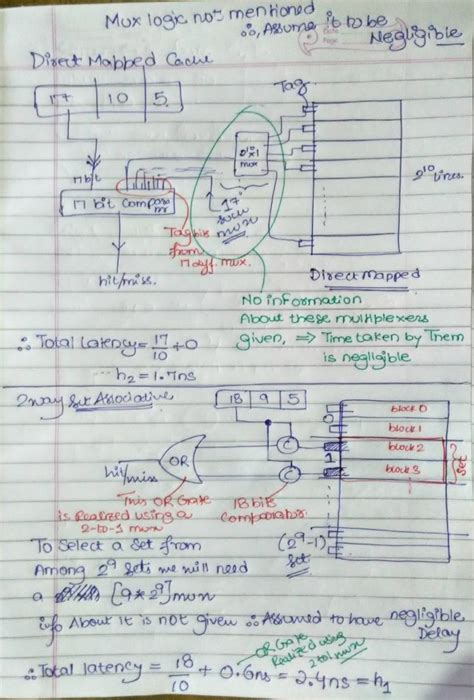 Mux logic not mentioned
∴, Assume it to be
Negligible
Date
Page
Direct Mapped Cache
17 10 5
Tag
17 bit
2¹⁰x1
mux
2¹⁰ lines.
17 bit Comparator
17
such
mux
Tag bits
from
17 diff. mux.
hit/miss.
Direct Mapped
No information
About these multiplexers
given, ⇒ Time taken by Them
is negligible
∴ Total latency = 17/10 + 0
h₂ = 1.7ns
2way Set Associative
18 9 5
0
block 0
block 1
1
block 2
block 3
set
C
C
OR
hit/miss
This OR Gate
is Realized using a
2-to-1 mux
18 bits
Comparator
To Select a Set from
(2⁹-1)
set
Among 2⁹ sets we will need
a [9*2⁹] mux
info About it is not given ∴ Assumed to have negligible
Delay
OR Gate
Realized using
2 to 1 mux
∴ Total latency = 18/10 + 0.6ns = 2.4ns = h₁